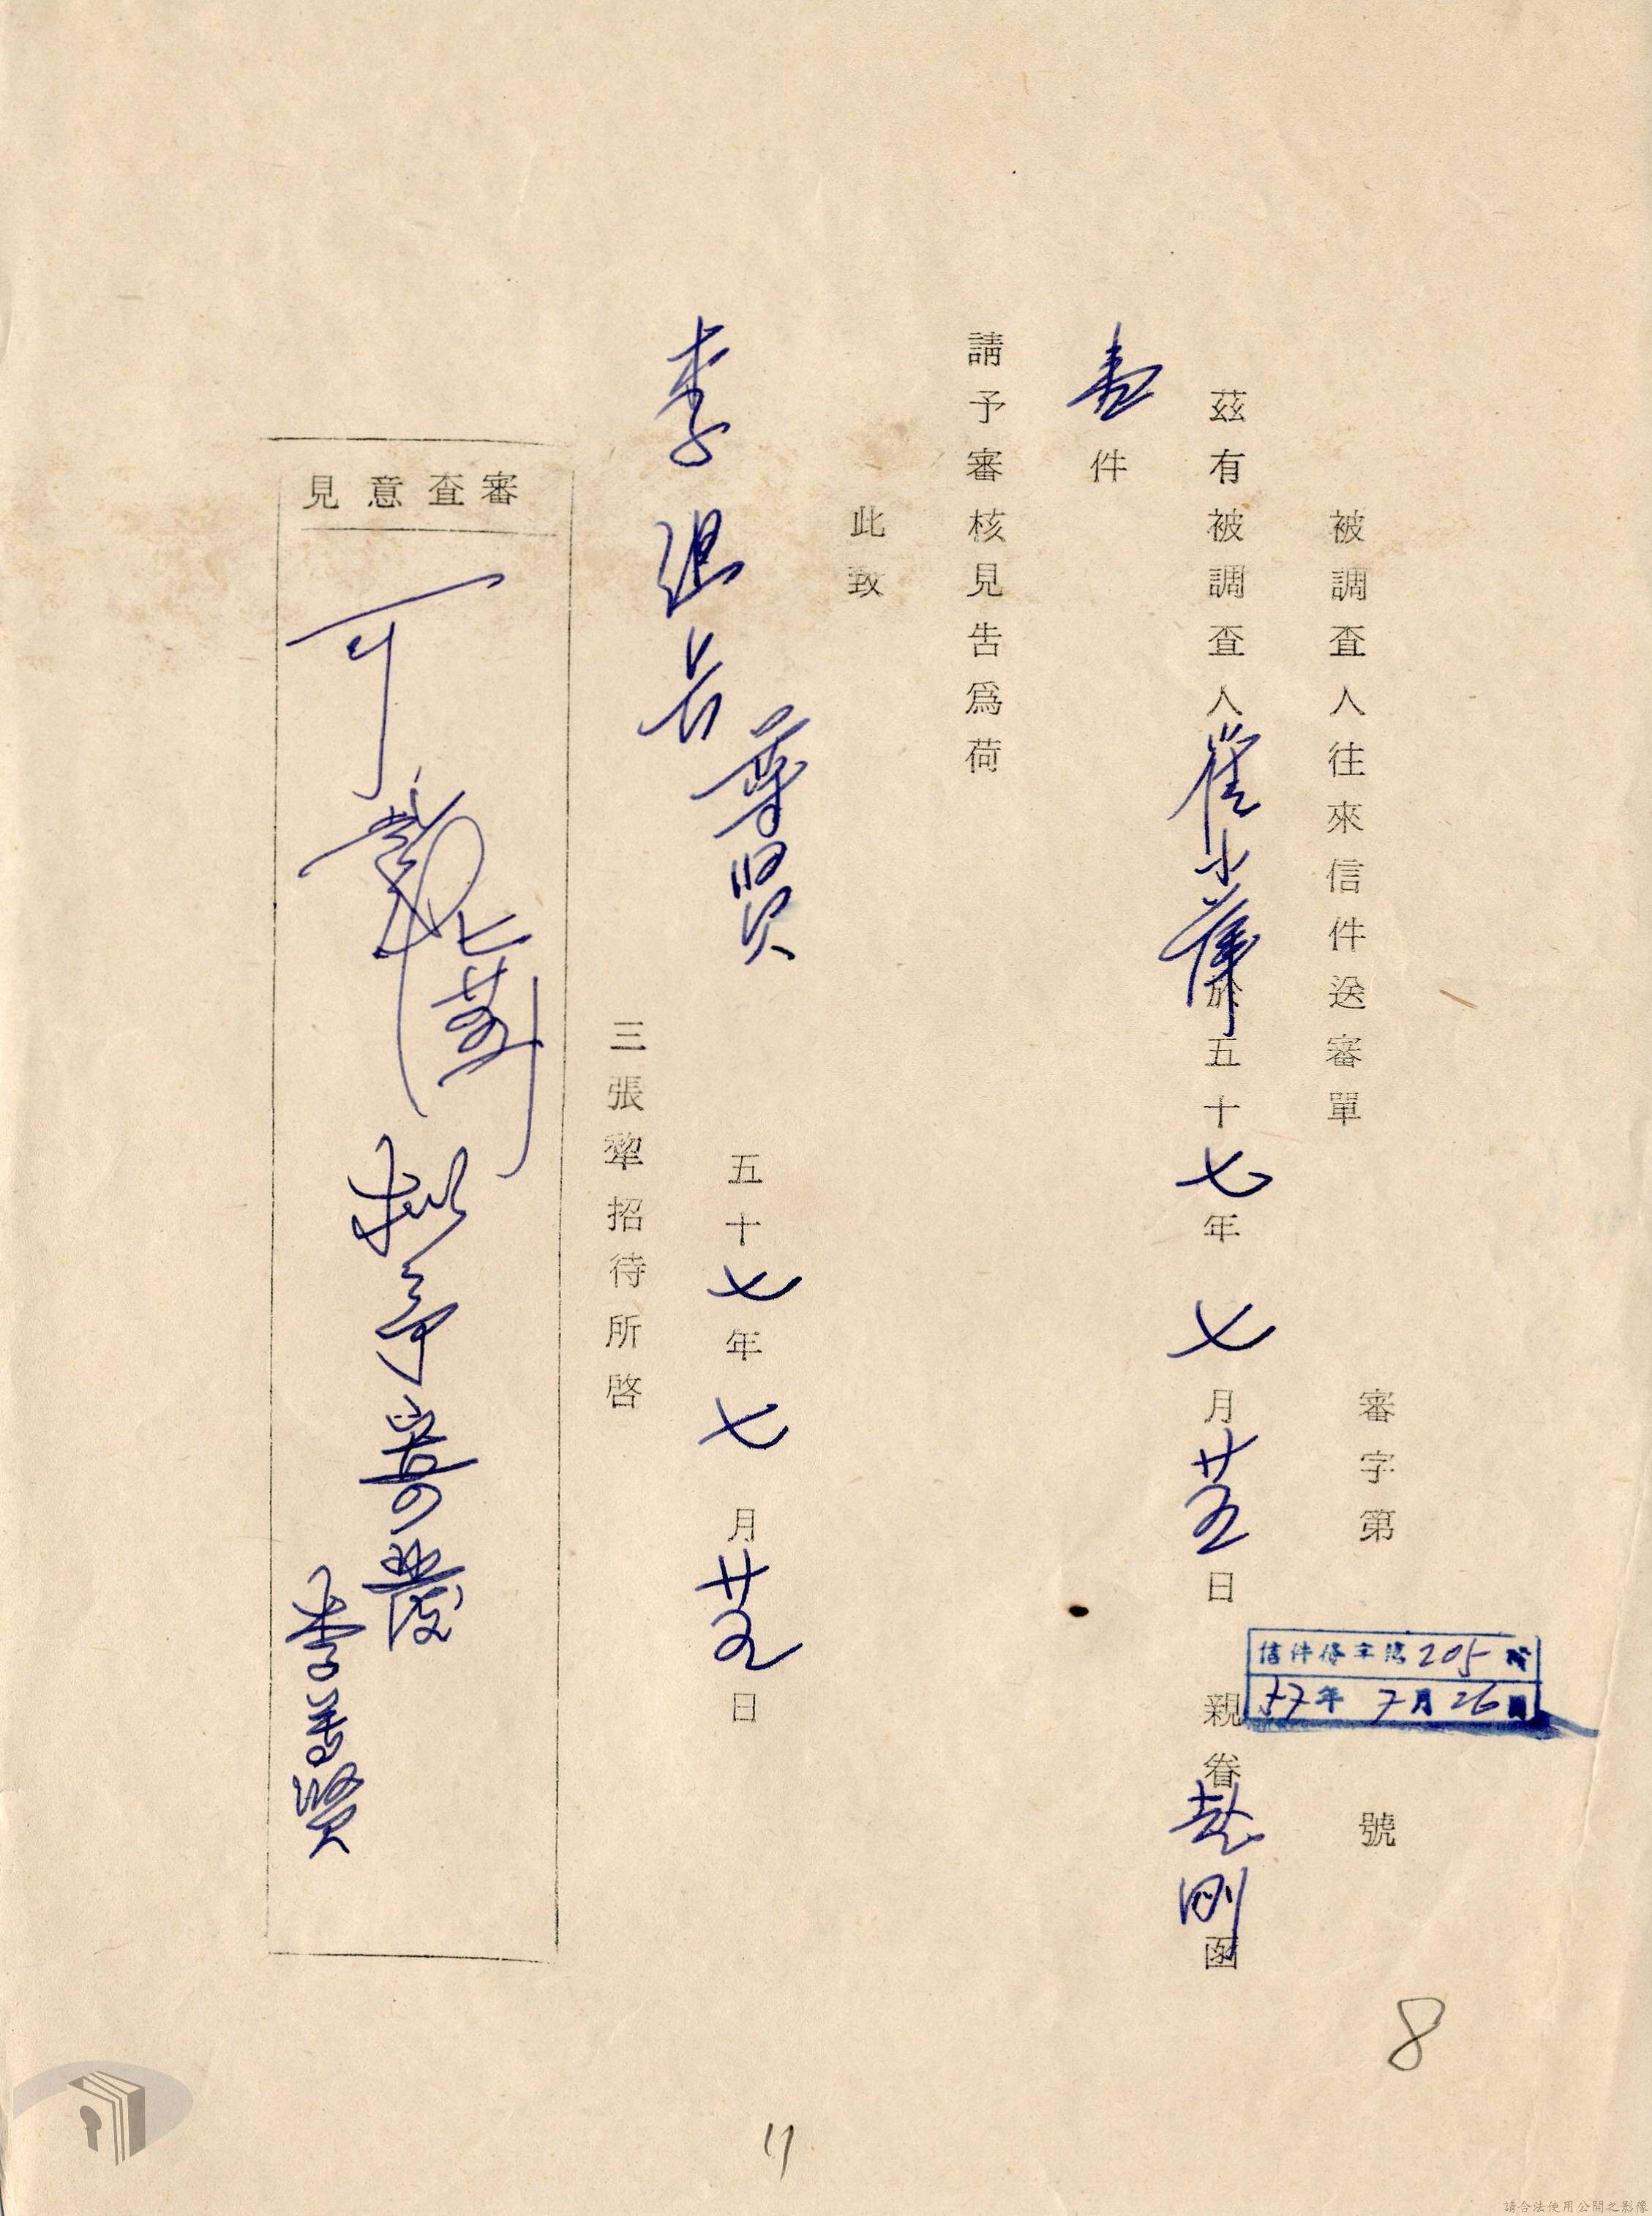 被調查人往來信件送審單
審字第 號
信件修字第205號
57年7月26日
茲有被調查人崔小萍於五十七年七月廿五日親眷趙剛函
壹件
請予審核見告為荷
此致
李組長尊賢
五十七年七月廿五日
三張犂招待所啓
審查意見
可
七廿六
擬予寄發
李尊賢
8
11
請合法使用公開之影像